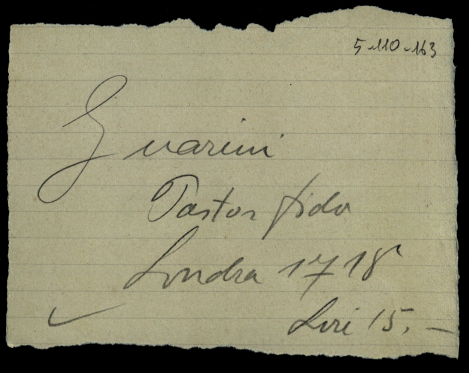 5-110-163
Guarini
Pastor fido
Londra 1718
Lire 15.-